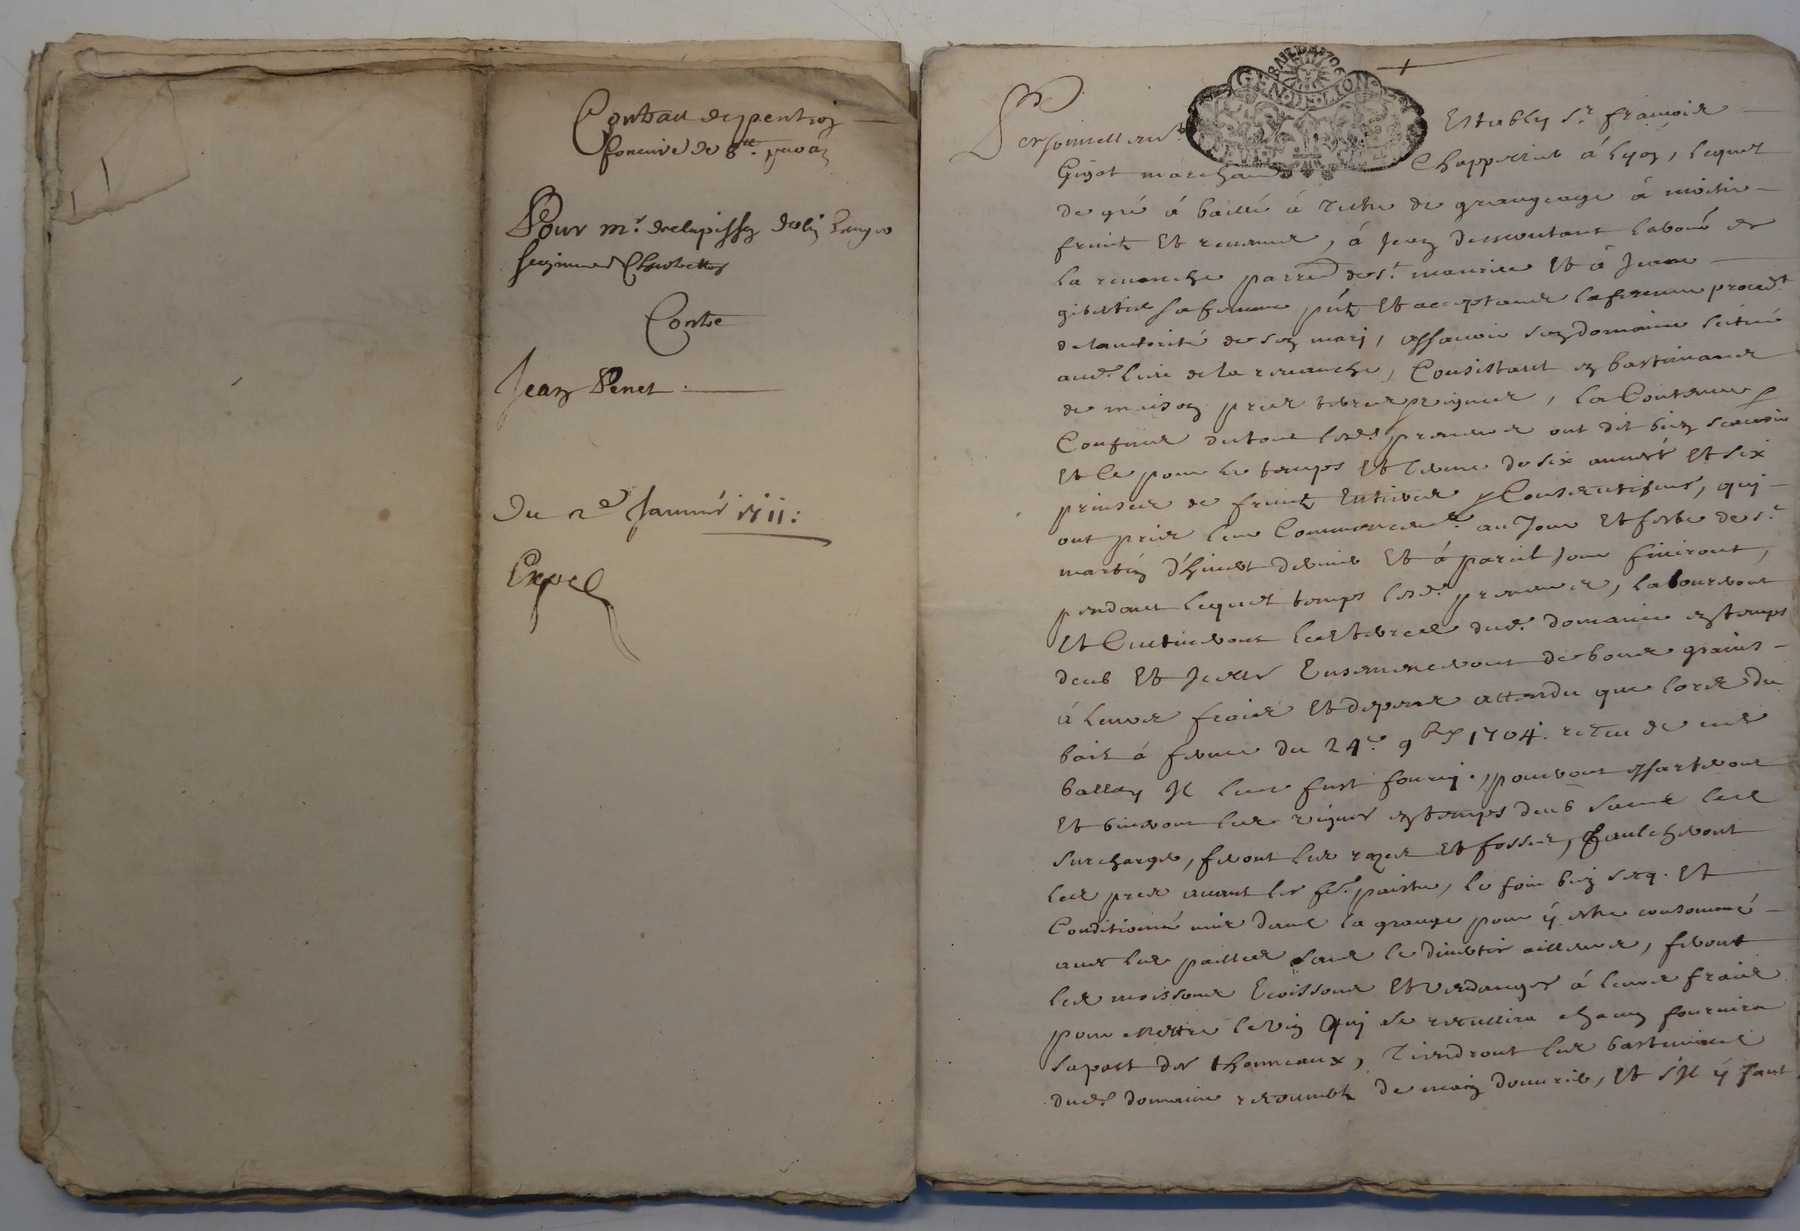 Contrau de pention
fonciere de
Pour mr. delapissy
Conte
Jean Penet.
Du 2e Janvier 1711:
Expcl
GEN. DE LION
Personnellemt. Estably Sr. francois
Gigot marchan Chappellier á Lyon, lequel
de gré á baillé á titre de grangeage á moitie
fruitz Et revenus, á Jean Demoutant laboúr de
la revanche parre. de st. maurice Et á Jeane
sa femme pñt Et acceptans la femme proced.t
de lautorité de son mary, assavoir son domaine scitué
aud. lieu de la revanche, Consistant en bastimans
de maison prez terres vignes, la Contenue
Confins du tout lesd. preneurs ont dit bien scavoir
Et Ce pour le temps Et terme de six années Et six
prinses de fruitz Entieres Et Consecutifves, qui
ont pris leur Commancem.t au Jour Et feste de st.
martin d'hivert dernier Et á pareil Jour finiront,
pendant lequel temps lesd. preneurs, laboureront
Et Cultiveront les terres dud. domaine en temps
deub Et Icelles Ensemenceront de bons grains
á leurs frais Et depens attendu que lors du
bail á ferme du 24e. 9bre 1704. receu de me
ballay Il leur fust fourny,
Et bineront les vignes en temps deub sans les
surcharger, feront les razes Et fosses, faulcheront
les prez avant les paistre, le foin bien secq. Et
Conditionné mis dans la grange pour ÿ estre consommé
avec les pailles sans le divertir ailleurs, feront
les moissons Et vendanges á leurs frais
pour mettre le vin quj se recullira chacun fournira
sa part des thonneaux, Tiendront les bastimans
dud. domaine recouverts de main douvrier, Et s'Il ÿ faut